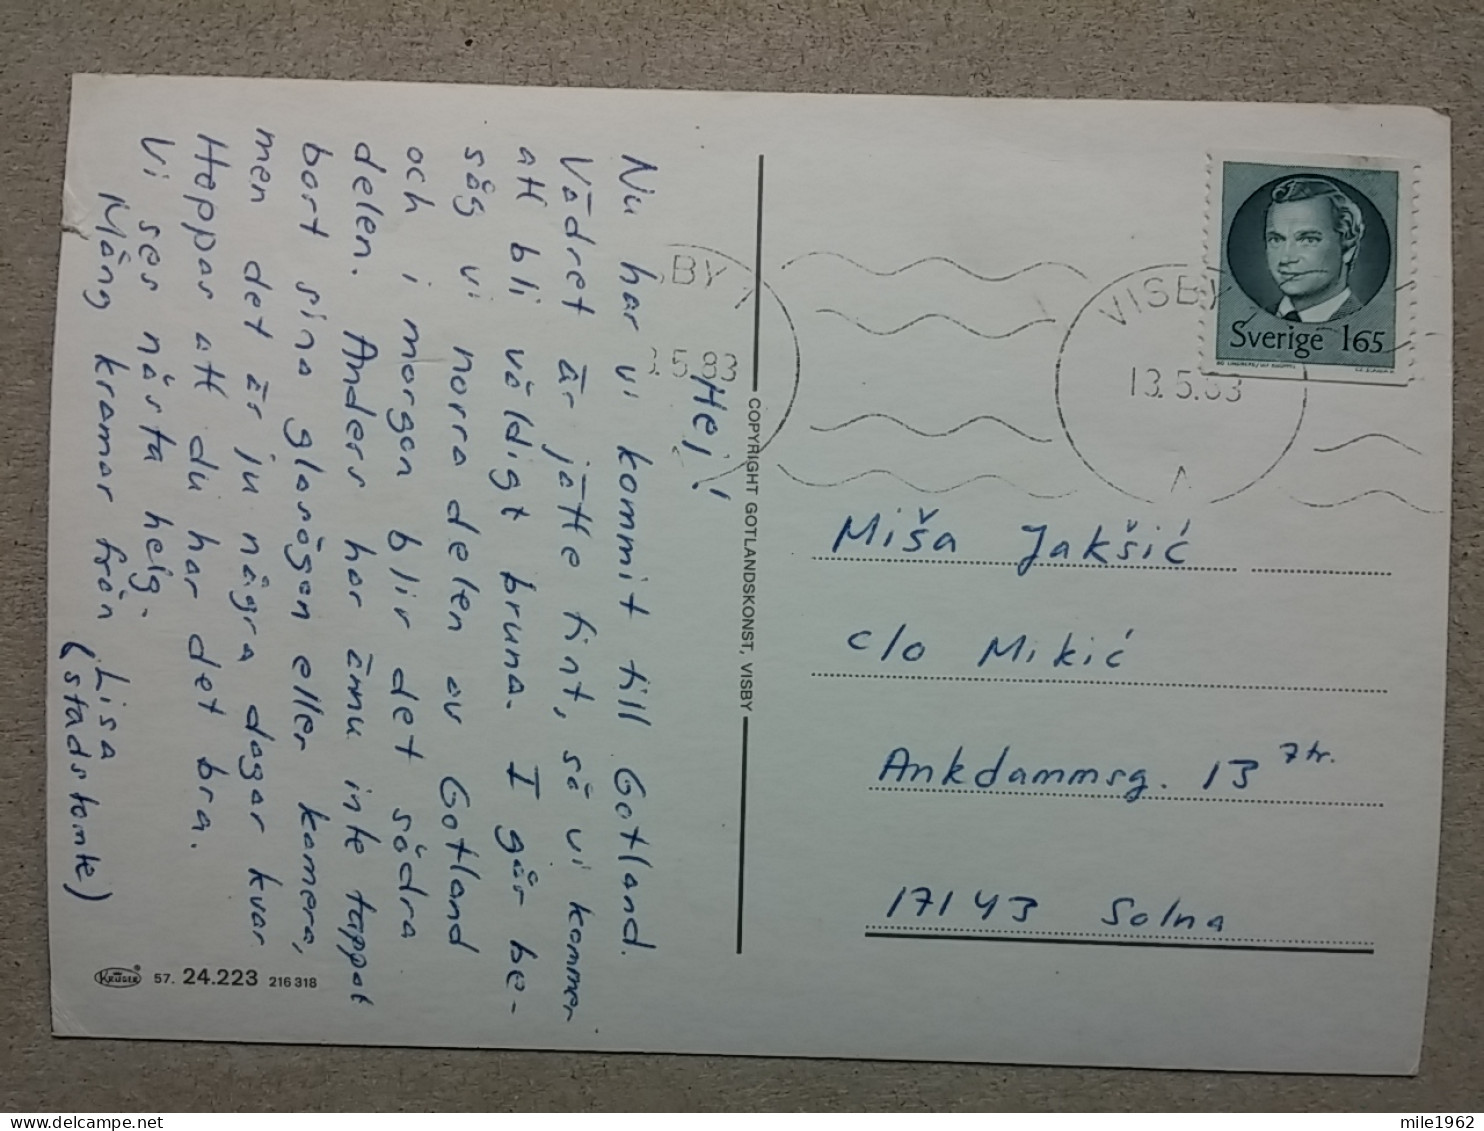 Hej!
Nu har vi kommit till Gotland.
Vädret är jätte fint, så vi kommer
att bli väldigt bruna. I går be-
såg vi norra delen av Gotland
och i morgon blir det södra
delen. Anders har ännu inte tappat
bort sina glasögon eller kamera,
men det är ju några dagar kvar.
Hoppas att du har det bra.
Vi ses nästa helg.
Mång kramar från Lisa
(stadstomte)
KRÜGER 57. 24.223 216 318
COPYRIGHT GOTLANDSKONST, VISBY
SBY
5.83
VISBY
13.5.83
A
Sverige 165
Miša Jakšić
c/o Mikić
Ankdammsg. 13 7tr.
17143 Solna
mile1962